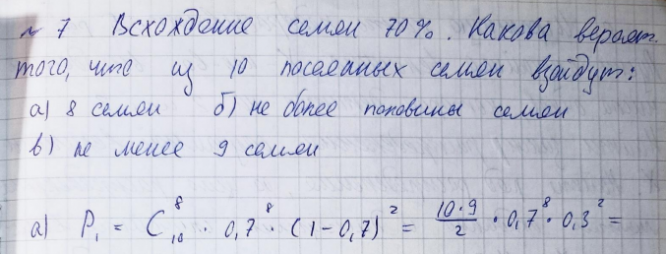 № 7 Всхождение семян 70%. Какова вероят.
того, что из 10 посеянных семян взойдут:
а) 8 семян б) не более половины семян
в) не менее 9 семян
а) P₁ = C₁₀⁸ · 0,7⁸ · (1-0,7)² = 10·9/2 · 0,7⁸ · 0,3² =